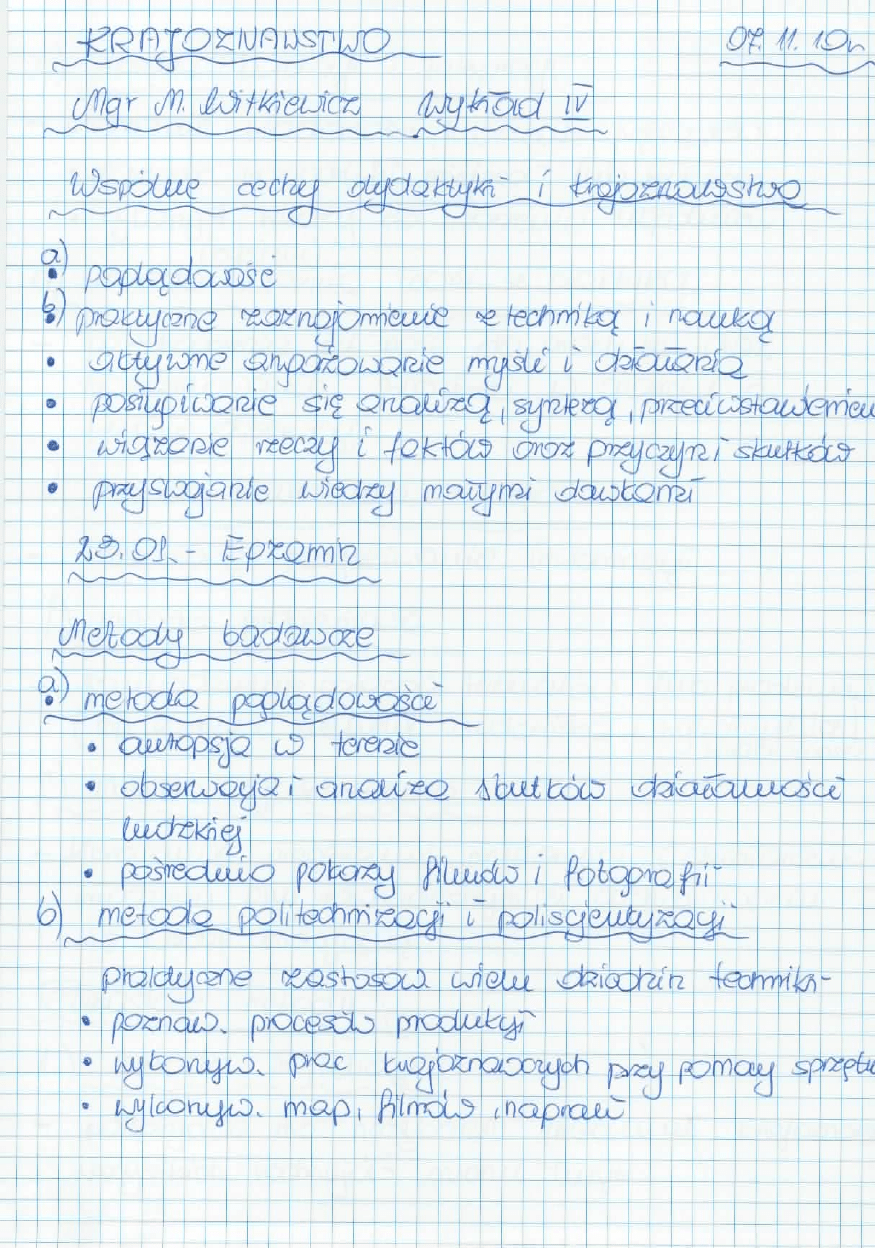 KRAJOZNAWSTWO 07.11.10r
Mgr M. Witkiewicz Wykład IV
Wspólne cechy dydaktyki i krajoznawstwa
a)
• poglądowość
b) praktyczne zaznajomienie z techniką i nauką
• aktywne angażowanie myśli i działania
• posługiwanie się analizą, syntezą, przeciwstawieniem
• wiązanie rzeczy i faktów oraz przyczyn i skutków
• przyswajanie wiedzy małymi dawkami
29.01. - Egzamin
Metody badawcze
a) metoda poglądowości
• autopsja w terenie
• obserwacja i analiza skutków działalności
ludzkiej
• pośrednio pokazy filmów i fotografii
b) metoda politechnizacji i poliscjentyzacji
praktyczne zastosow wielu dziedzin techniki
• poznaw. procesów produkcji
• wykonyw. prac krajoznawczych przy pomocy sprzętu
• wykonyw. map, filmów, napraw